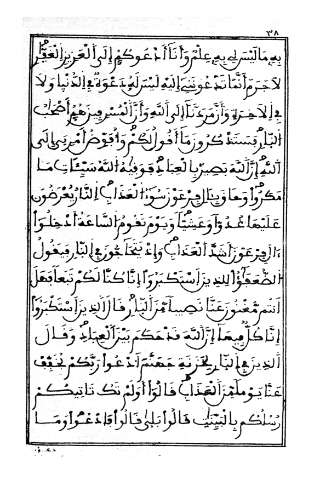 ٣٨
بِهِ مَا لَيْسَ لِي بِهِ عِلْمٌ وَأَنَا أَدْعُوكُمْ إِلَى الْعَزِيزِ الْغَفَّارِ
لَا جَرَمَ أَنَّمَا تَدْعُونَنِي إِلَيْهِ لَيْسَ لَهُ دَعْوَةٌ فِي الدُّنْيَا وَلَا
فِي الَاخِرَةِ وَأَنَّ مَرَدَّنَا إِلَى اللَّهِ وَأَنَّ الْمُسْرِفِينَ هُمْ أَصْحَٰبُ
النَّارِ فَسَتَذْكُرُونَ مَا أَقُولُ لَكُمْ وَأُفَوِّضُ أَمْرِيَ إِلَى
اللَّهِ إِنَّ اللَّهَ بَصِيرٌ بِالْعِبَادِ فَوَقَيٰهُ اللَّهُ سَيِّـَٔاتِ مَا
مَكَرُوا وَحَاقَ بِـَٔالِ فِرْعَوْنَ سُوءُ الْعَذَابِ النَّارُ يُعْرَضُونَ
عَلَيْهَا غُدُوًّا وَعَشِيًّا وَيَوْمَ تَقُومُ السَّاعَةُ أَدْخِلُوا
ءَالَ فِرْعَوْنَ أَشَدَّ الْعَذَابِ وَإِذْ يَتَحَاجُّونَ فِي النَّارِ فَيَقُولُ
الضُّعَفَٰٓؤُا لِلَّذِينَ اسْتَكْبَرُوا إِنَّا كُنَّا لَكُمْ تَبَعًا فَهَلْ
أَنتُم مُّغْنُونَ عَنَّا نَصِيبًا مِّنَ النَّارِ قَالَ الَّذِينَ اسْتَكْبَرُوا
إِنَّا كُلٌّ فِيهَا إِنَّ اللَّهَ قَدْ حَكَمَ بَيْنَ الْعِبَادِ وَقَالَ
الَّذِينَ فِي النَّارِ لِخَزَنَةِ جَهَنَّمَ ادْعُوا رَبَّكُمْ يُخَفِّفْ
عَنَّا يَوْمًا مِّنَ الْعَذَابِ قَالُوا أَوَلَمْ تَكُ تَاتِيكُمْ
رُسُلُكُم بِالْبَيِّنَٰتِ قَالُوا بَلَىٰ قَالُوا فَادْعُوا وَمَا